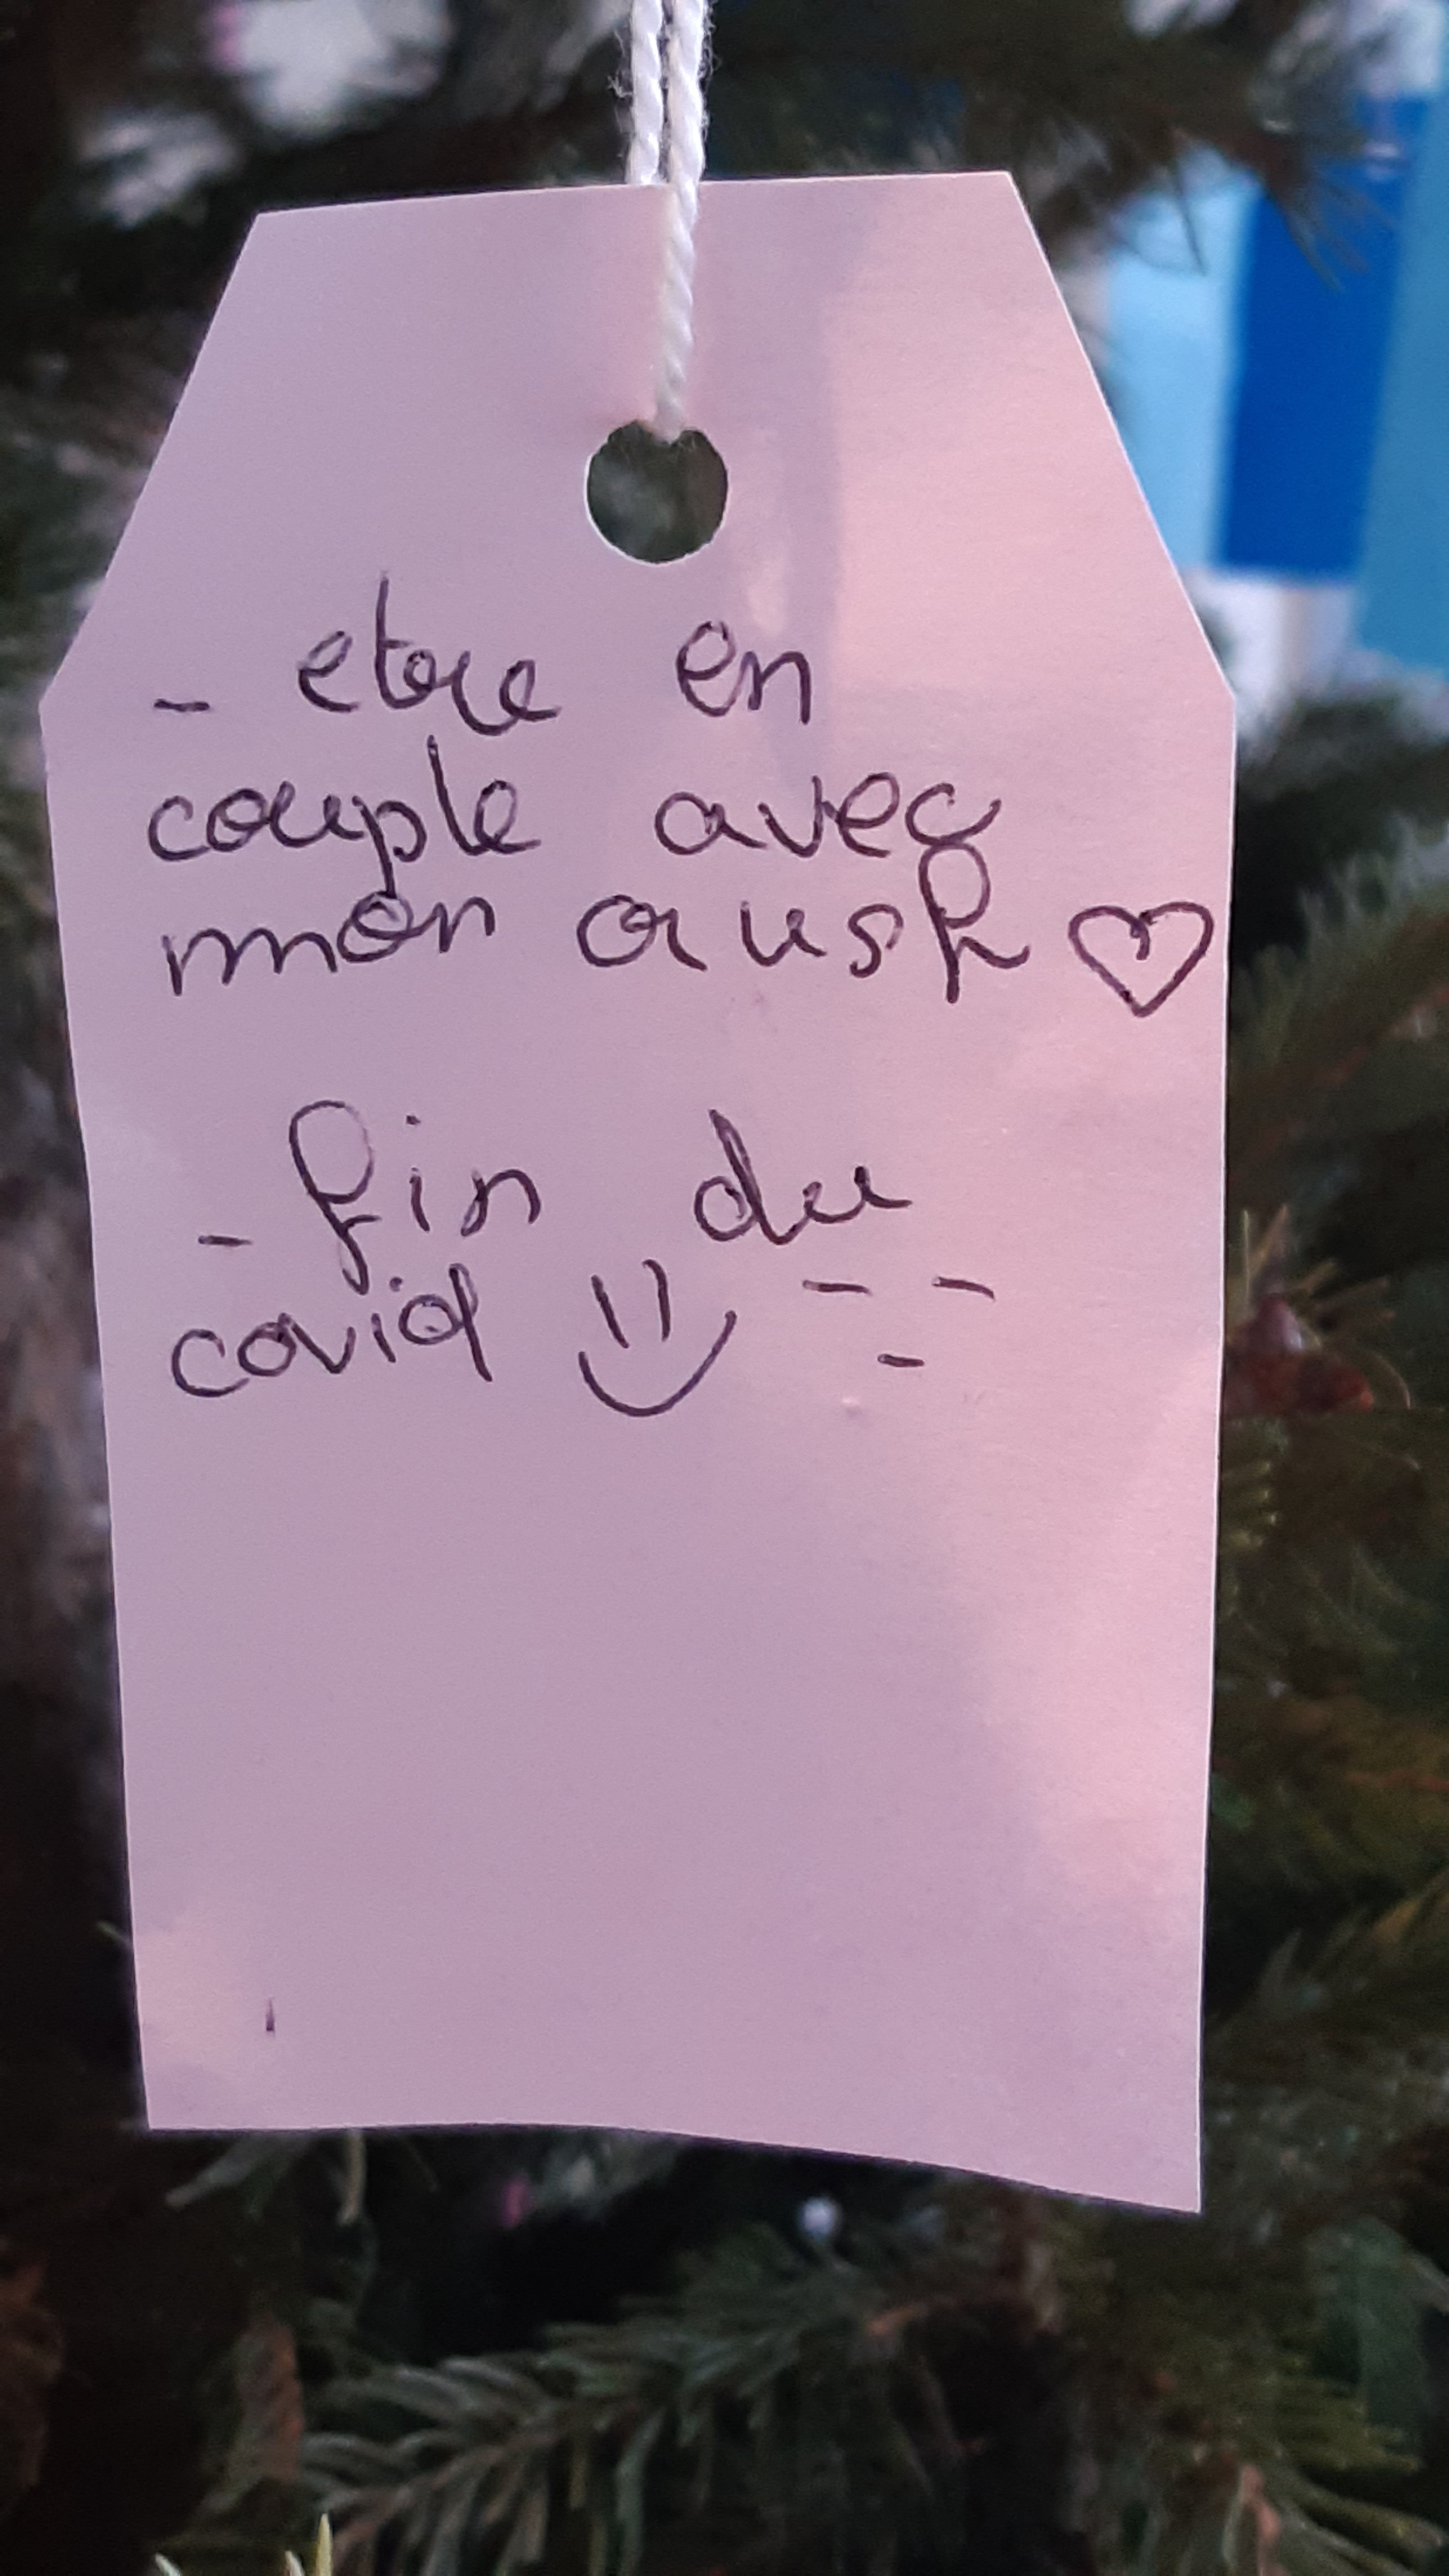 - etre en
couple avec
mon crush ♡
- fin du
covid :) - - -